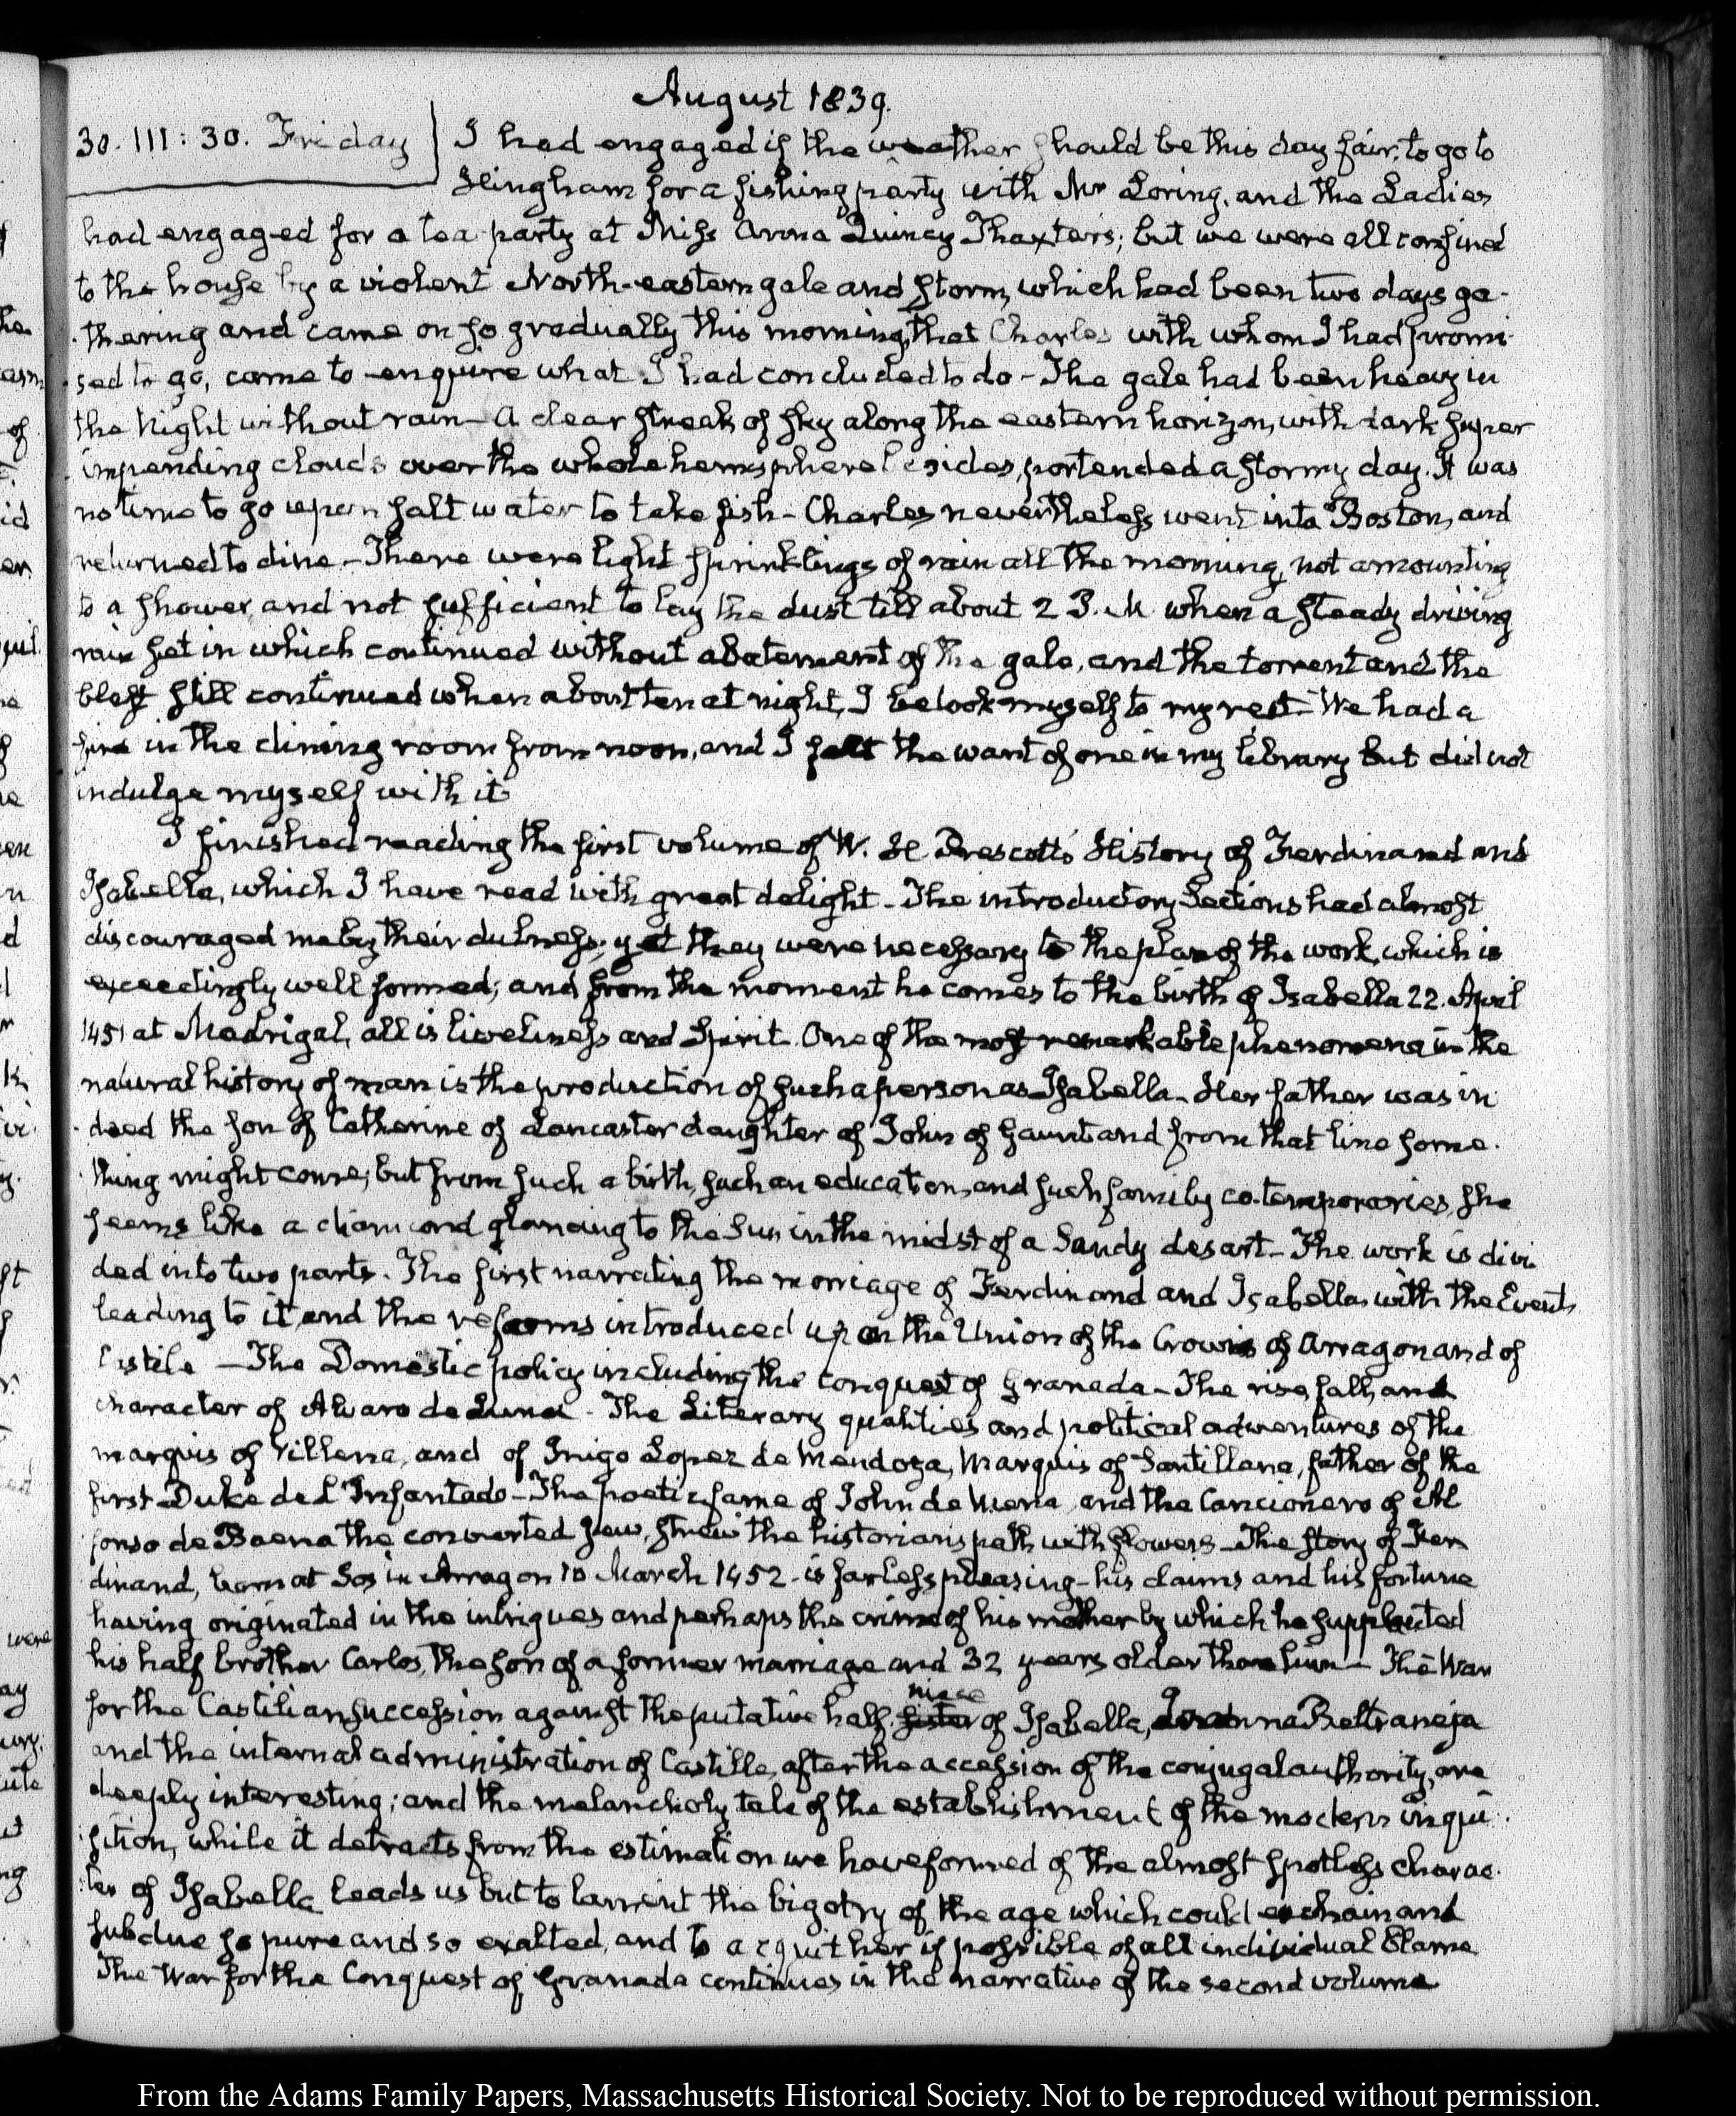 August 1839.
30. III: 30. Friday
I had engaged if the weather should be this day fair, to go to
Hingham for a fishing party with Mr Loring, and the Ladies
had engaged for a tea-party at Miss Anna Quincy Thaxter's; but we were all confined
to the house by a violent North-eastern gale and storm, which had been two days ga-
thering and came on so gradually this morning, that Charles with whom I had promi-
sed to go, came to enquire what I had concluded to do - The gale had been heavy in
the Night without rain - A clear streak of sky along the eastern horizon, with dark super
impending clouds over the whole hemisphere besides, portended a stormy day. It was
no time to go upon salt water to take fish - Charles nevertheless went into Boston, and
returned to dine. - There were light sprinklings of rain all the morning, not amounting
to a shower, and not sufficient to lay the dust till about 2 P.M. when a steady driving
rain set in which continued without abatement of the gale, and the torrent and the
blast still continued when about ten at night, I betook myself to my rest - We had a
fire in the dining room from noon, and I felt the want of one in my library but did not
indulge myself with it
I finished reading the first volume of W. H Prescott's History of Ferdinand and
Isabella, which I have read with great delight - The introductory Sections had almost
discouraged me by their dulness, yet they were necessary to the plan of the work, which is
exceedingly well formed; and from the moment he comes to the birth of Isabella 22. April
1451 at Madrigal, all is liveliness and Spirit. One of the most remarkable phenomena in the
natural history of man is the production of such a person as Isabella - Her father was in
deed the son of Catherine of Lancaster daughter of John of Gaunt and from that line some-
thing might come; but from such a birth, such an education, and such family co-temporaries, she
seems like a diamond glancing to the Sun in the midst of a Sandy desart - The work is divi
ded into two parts. The first narrating the marriage of Ferdinand and Isabella, with the Events
leading to it, and the reforms introduced upon the Union of the Crowns of Arragon and of
Castile - The Domestic policy including the Conquest of Granada - The rise, fall, and
character of Alvaro de Luna - The Literary qualities and political adventures of the
marquis of Villena, and of Inigo Lopez de Mendoza, Marquis of Santillana, father of the
first Duke del Infantado - The poetic fame of John de Mena, and the Cancionero of Al
fonso de Baena the converted Jew, strew the historian's path with flowers - The story of Fer
dinand, born at Sos in Arragon 10 March 1452 - is far less pleasing - his claims and his fortune
having originated in the intrigues and perhaps the crime of his mother by which he supplanted
his half brother Carlos, the son of a former marriage and 32 years older than him - The War
for the Castilian succession against the putative half-sister niece of Isabella, Joanna Beltraneja
and the internal administration of Castille, after the accession of the conjugal authority, are
deeply interesting; and the melancholy tale of the establishment of the modern inqui-
sition, while it detracts from the estimation we have formed of the almost spotless charac-
ter of Isabella leads us but to lament the bigotry of the age which could enchain and
subdue so pure and so exalted, and to acquit her if possible of all individual blame
The War for the Conquest of Granada continues in the narrative of the second volume
From the Adams Family Papers, Massachusetts Historical Society. Not to be reproduced without permission.